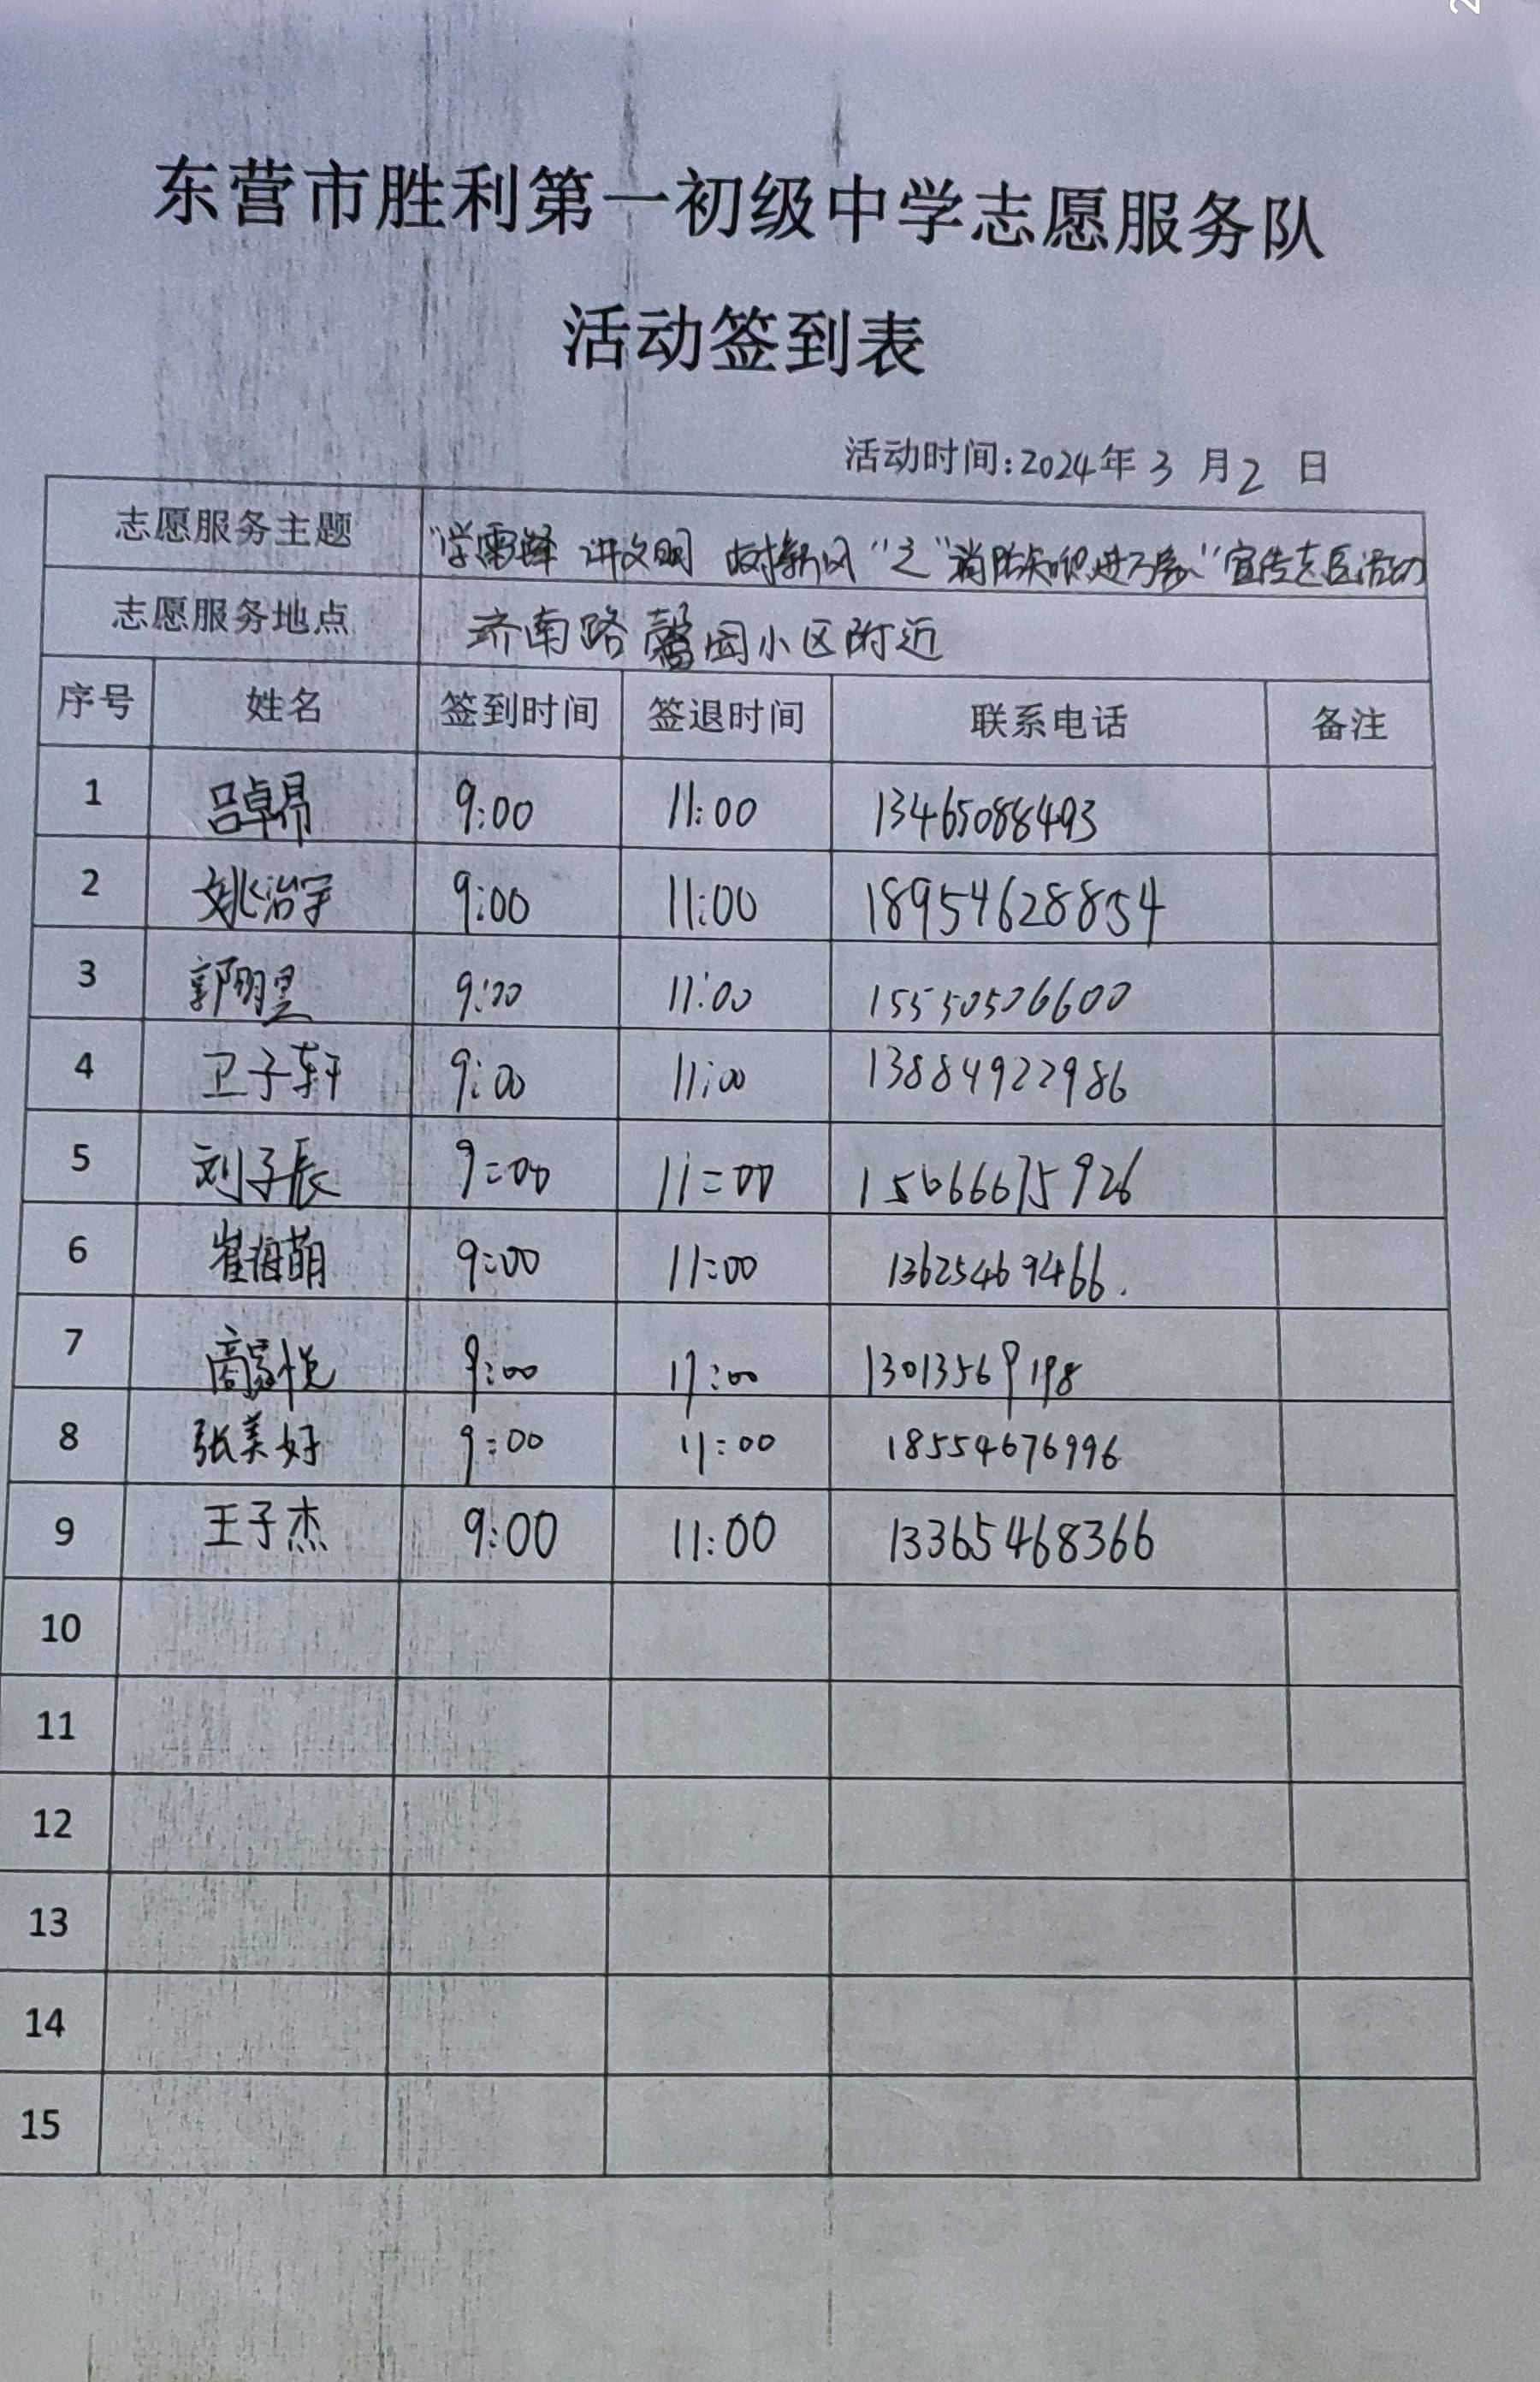 东营市胜利第一初级中学志愿服务队
活动签到表
活动时间:2024年 3 月 2 日
志愿服务主题 “学雷锋 讲文明 树新风”之“消防知识进万家”宣传志愿活动
志愿服务地点 济南路馨园小区附近
序号 姓名 签到时间 签退时间 联系电话 备注
1 吕卓昂 9:00 11:00 13465088493
2 姚治宇 9:00 11:00 18954628854
3 郭明昱 9:00 11:00 15550506600
4 卫子轩 9:00 11:00 13884922986
5 刘子辰 9:00 11:00 15066675926
6 崔海萌 9:00 11:00 13625469466.
7 商家悦 9:00 11:00 13013569198
8 张美好 9:00 11:00 18554676996
9 王子杰 9:00 11:00 13365468366
10
11
12
13
14
15